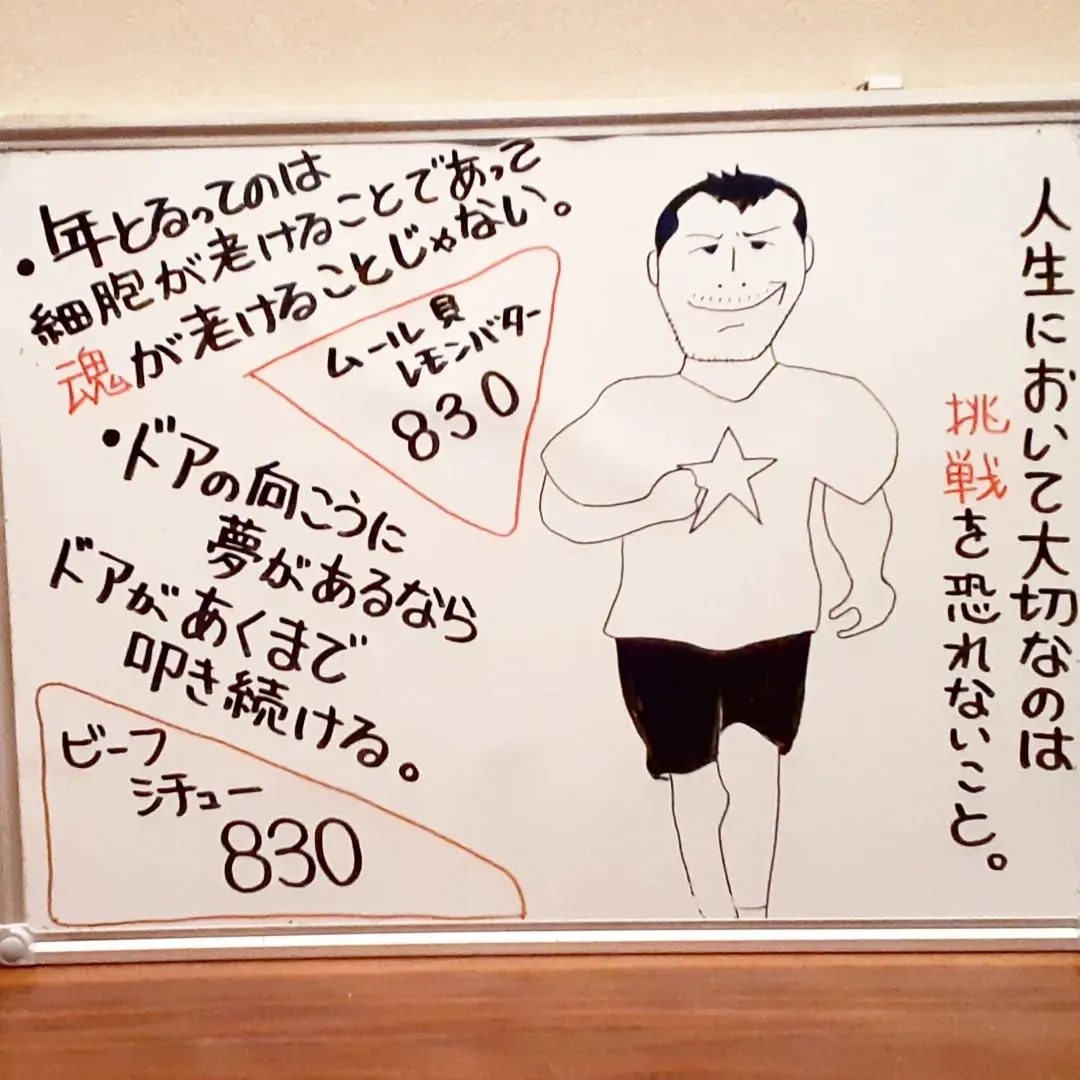 ・年とるってのは
細胞が老けることであって
魂が老けることじゃない。
ムール貝
レモンバター
830
・ドアの向こうに
夢があるなら
ドアがあくまで
叩き続ける。
ビーフ
シチュー
830
人生において大切なのは
挑戦を恐れないこと。